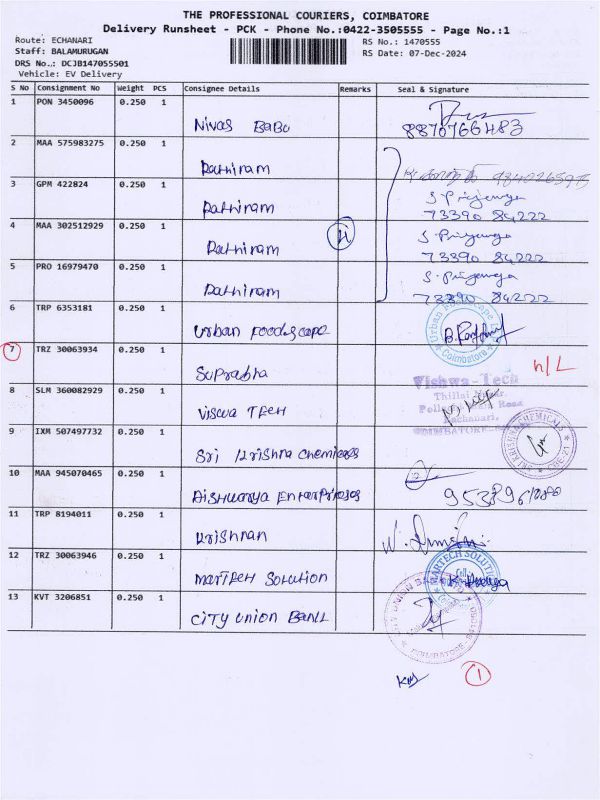 THE PROFESSIONAL COURIERS, COIMBATORE
Delivery Runsheet - PCK - Phone No.:0422-3505555 - Page No.:1
Route: ECHANARI
Staff: BALAMURUGAN
DRS No..: DCJB147055501
Vehicle: EV Delivery
RS No.: 1470555
RS Date: 07-Dec-2024
S No Consignment No Weight PCS Consignee Details Remarks Seal & Signature
1 PON 3450096 0.250 1 Nivas Babu 8870766483
2 MAA 575983275 0.250 1 Rathiram
3 GPM 422824 0.250 1 Rathiram S. Priyanga 73390 84222
4 MAA 302512929 0.250 1 Rathiram S. Priyanga 73390 84222
5 PRO 16979470 0.250 1 Rathiram S. Priyanga 73390 84222
6 TRP 6353181 0.250 1 Urban Foodscape Urban Foodscape Coimbatore
7 TRZ 30063934 0.250 1 Suprabha N/L
8 SLM 360082929 0.250 1 Viswa Tech Vishwa-Tech
Thillai Nagar,
Road
Eachanari,
COIMBATORE
9 IXM 507497732 0.250 1 Sri Krishna Chemicals SRI KRISHNA CHEMICALS CBE-21
10 MAA 945070465 0.250 1 Aishwarya Enterprises
11 TRP 8194011 0.250 1 Krishnan
12 TRZ 30063946 0.250 1 Martech Solution MARTECH SOLUTION
13 KVT 3206851 0.250 1 City Union Bank CITY UNION BANK COIMBATORE
1